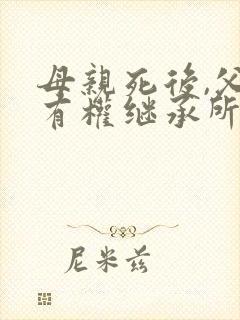 母親死後,父
有權继承所
尼米兹